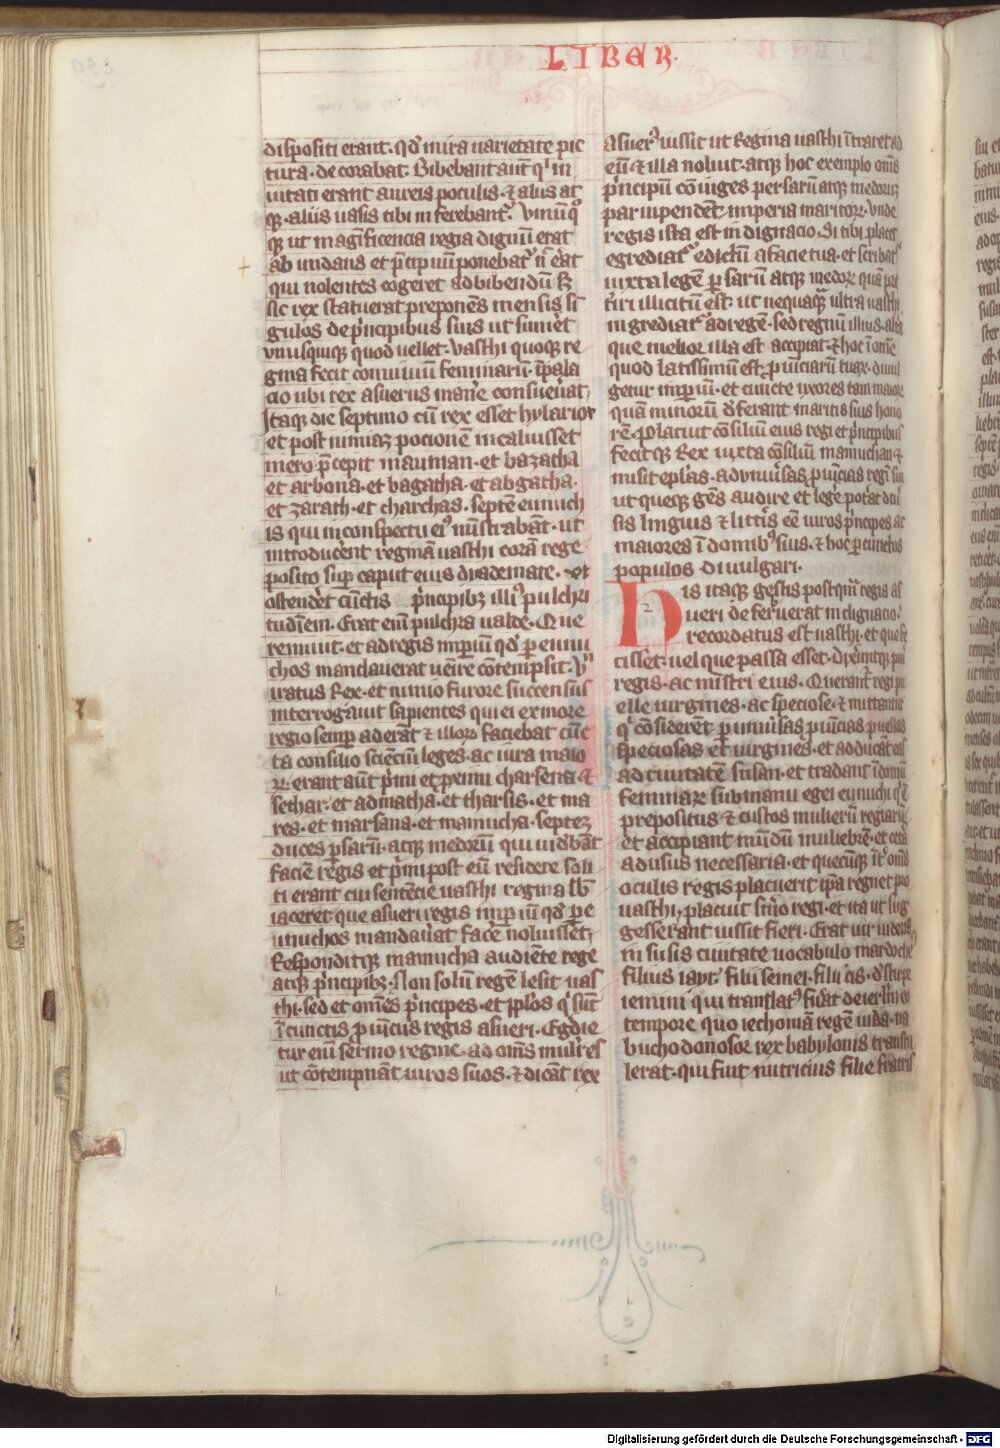 LIBER.
dispositi erant. qd̄ mira uarietate pic
tura. de corabat. Bibebant aut̄ q̇ in
uitati erant aureis poculis. ⁊ aliis at
qꝫ. aliis uasis cibi in ferebantᷣ. Vinū qꝫ
qꝫ ut magnificencia regia dignū erat
ab undans et p̄cipuū ponebatᷣ n̄ erat
qui nolentes cogeret ad bibendū. sꝫ
sic rex statuerat preponēs mensis sī
gulos de p̄ncipibus suis ut sumet
vnusquisqꝫ quod uellet. Vasthi quoqꝫ re
gina fecit conuiuiū feminarū. ī pala
cio ubi rex asuerus manere consueuerat.
Itaqꝫ die septimo cū rex esset hylarior
et post nimiaꝫ pocionē incaluisset
mero p̄cepit mauman. et bazatha
et arbona. et bagatha. et abgatha.
et zarath. et charchas. septē eunuch
is qui in conspectu eiꝰ mīstrabāt. ut
introducerent reginā uasthi corā rege
posito suꝑ caput eius dyademate. vt
ostenderet cūctis p̄ncipibꝫ illiꝰ pulchri
tudinem. Erat enī pulchra ualde. Que
rennuit. et ad regis impiū qd̄ per eunu
chos mandauerat uenire cōtempsit. Vn̄
iratus Rex. et nimio furore succensus
interrogauit sapientes qui ei ex more
regio semꝑ aderāt ⁊ illoꝝ faciebat cūc
ta consilio scienciū leges. ac iura maio
ꝝ. erant aut̄ p̄mi et p̄ximi charsena. ⁊
sethar. et admatha. et tharsis. et ma
res. et marsana. et mamucha. septeꝫ
duces ꝑsarū. atqꝫ medorū qui uidebāt
faciē regis et p̄mi post eū residere soli
ti erant cui sentencie uasthi regina sb̄
iaceret que asueri regis impiū qd̄ per e
unuchos mandauerat facere noluisset.
Responditqꝫ mamucha audiēte rege
atqꝫ p̄ncipibꝫ. Non solū regē lesit uas
thi. sed et omēs p̄ncipes. et pplos q̇ sūt
ī cunctis prouīciis regis asueri. Egredie
tur enī sermo regine. ad omīs mulieres
ut cōtempnāt uiros suos. ⁊ dicāt rex
asuerꝰ iussit ut Regina uasthi ītraret ad
eū. ⁊ illa noluit. atqꝫ hoc exemplo omīs
p̄ncipū cōiuges persarū atqꝫ medoruꝫ
paruipendēt imperia maritoꝝ. Vnde
regis ista est indignacio. Si tibi placet
egrediatᷣ edictū a facie tua. et scribatᷣ
iuxta legē ꝑsarū atqꝫ medoꝝ quā pre
teriri illicitū est. ut nequaqᷓꝫ ultra uasthi
ingrediatᷣ ad regē. sed regnū illius. alt̄a
que melior illa est accipiat. ⁊ hoc ī omē
quod latissimū est prouīciarū tuaꝝ. diuul
getur imperiū. et cuncte uxores tam maioꝝ
quā minorū deferant maritis suis hono
rē. Placuit cōsiliū eius regi et p̄ncipibus
fecitqꝫ Rex iuxta cōsiliū mamuchan. ⁊
misit ep̄las. ad vniuersas prouīcias regni sui
ut queqꝫ gēs audire et legere poterat diu
sis linguis ⁊ litteris eē uiros p̄ncipes ac
maiores ī domibꝰ suis. ⁊ hoc ꝑ cūctos
populos diuulgari.
HIs itaqꝫ gestis postqᷓ regis as
ueri deferuerat indignacio.
recordatus est uasthi. et que fe
cisset. uel que passa esset. Dixerūtqꝫ pueri
regis. ac mīstri eius. Querantᷣ regi pu
elle uirgines. ac speciose. ⁊ mittantur
q̇ cōsiderēt per uniuersas prouīcias puellas
speciosas et uirgines. et adducāt eas
ad ciuitatē susan. et tradant ī domū
feminaꝝ sub manu egei eunuchi q̇ ē
prepositus ⁊ custos mulierū regiarū.
et accipiant mūdū muliebrē. et cetera
ad usus necessaria. et quecūqꝫ īt̄ omēs
oculis regis placuerit ip̄a regnet pro
uasthi. placuit sermo regi. et ita ut sug
gesserant iussit fieri. Erat uir iudeus
in susis ciuitate uocabulo mardoche
filius iayr. filii semei. filii cis. de stirpe
iemini qui translatꝰ fuerat de ierl̄m eo
tempore quo iechoniā regē iuda. na
buchodonosor rex babylonis transtu
lerat. qui fuit nutricius filie fratris
Digitalisierung gefördert durch die Deutsche Forschungsgemeinschaft - DFG